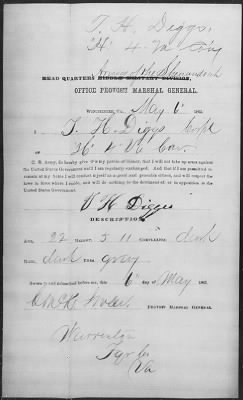 T. H. Diggs
H. 4. Va Cav
Army of the Shenandoah
HEAD QUARTERS MIDDLE MILITARY DIVISION,
OFFICE PROVOST MARSHAL GENERAL.
WINCHESTER, VA., May 6 1865
I T. H. Diggs Corpl
H 4 Va Cav.
C. S. Army, do hereby give this my parole of honor, that I will not take up arms against the
United States Government until I am regularly exchanged. And that if I am permitted to
remain at my home I will conduct myself as a good and peaceable citizen, and will respect the
laws in force where I reside, and will do nothing to the detriment of or in opposition to the
United States Government.
T H Diggs
DESCRIPTION:
AGE, 22 HEIGHT, 5 11 COMPLEXION, dark
HAIR, dark EYES, gray
Sworn to and subscribed before me, this 6th day of May 1865.
PROVOST MARSHAL GENERAL.
Warrenton
Va